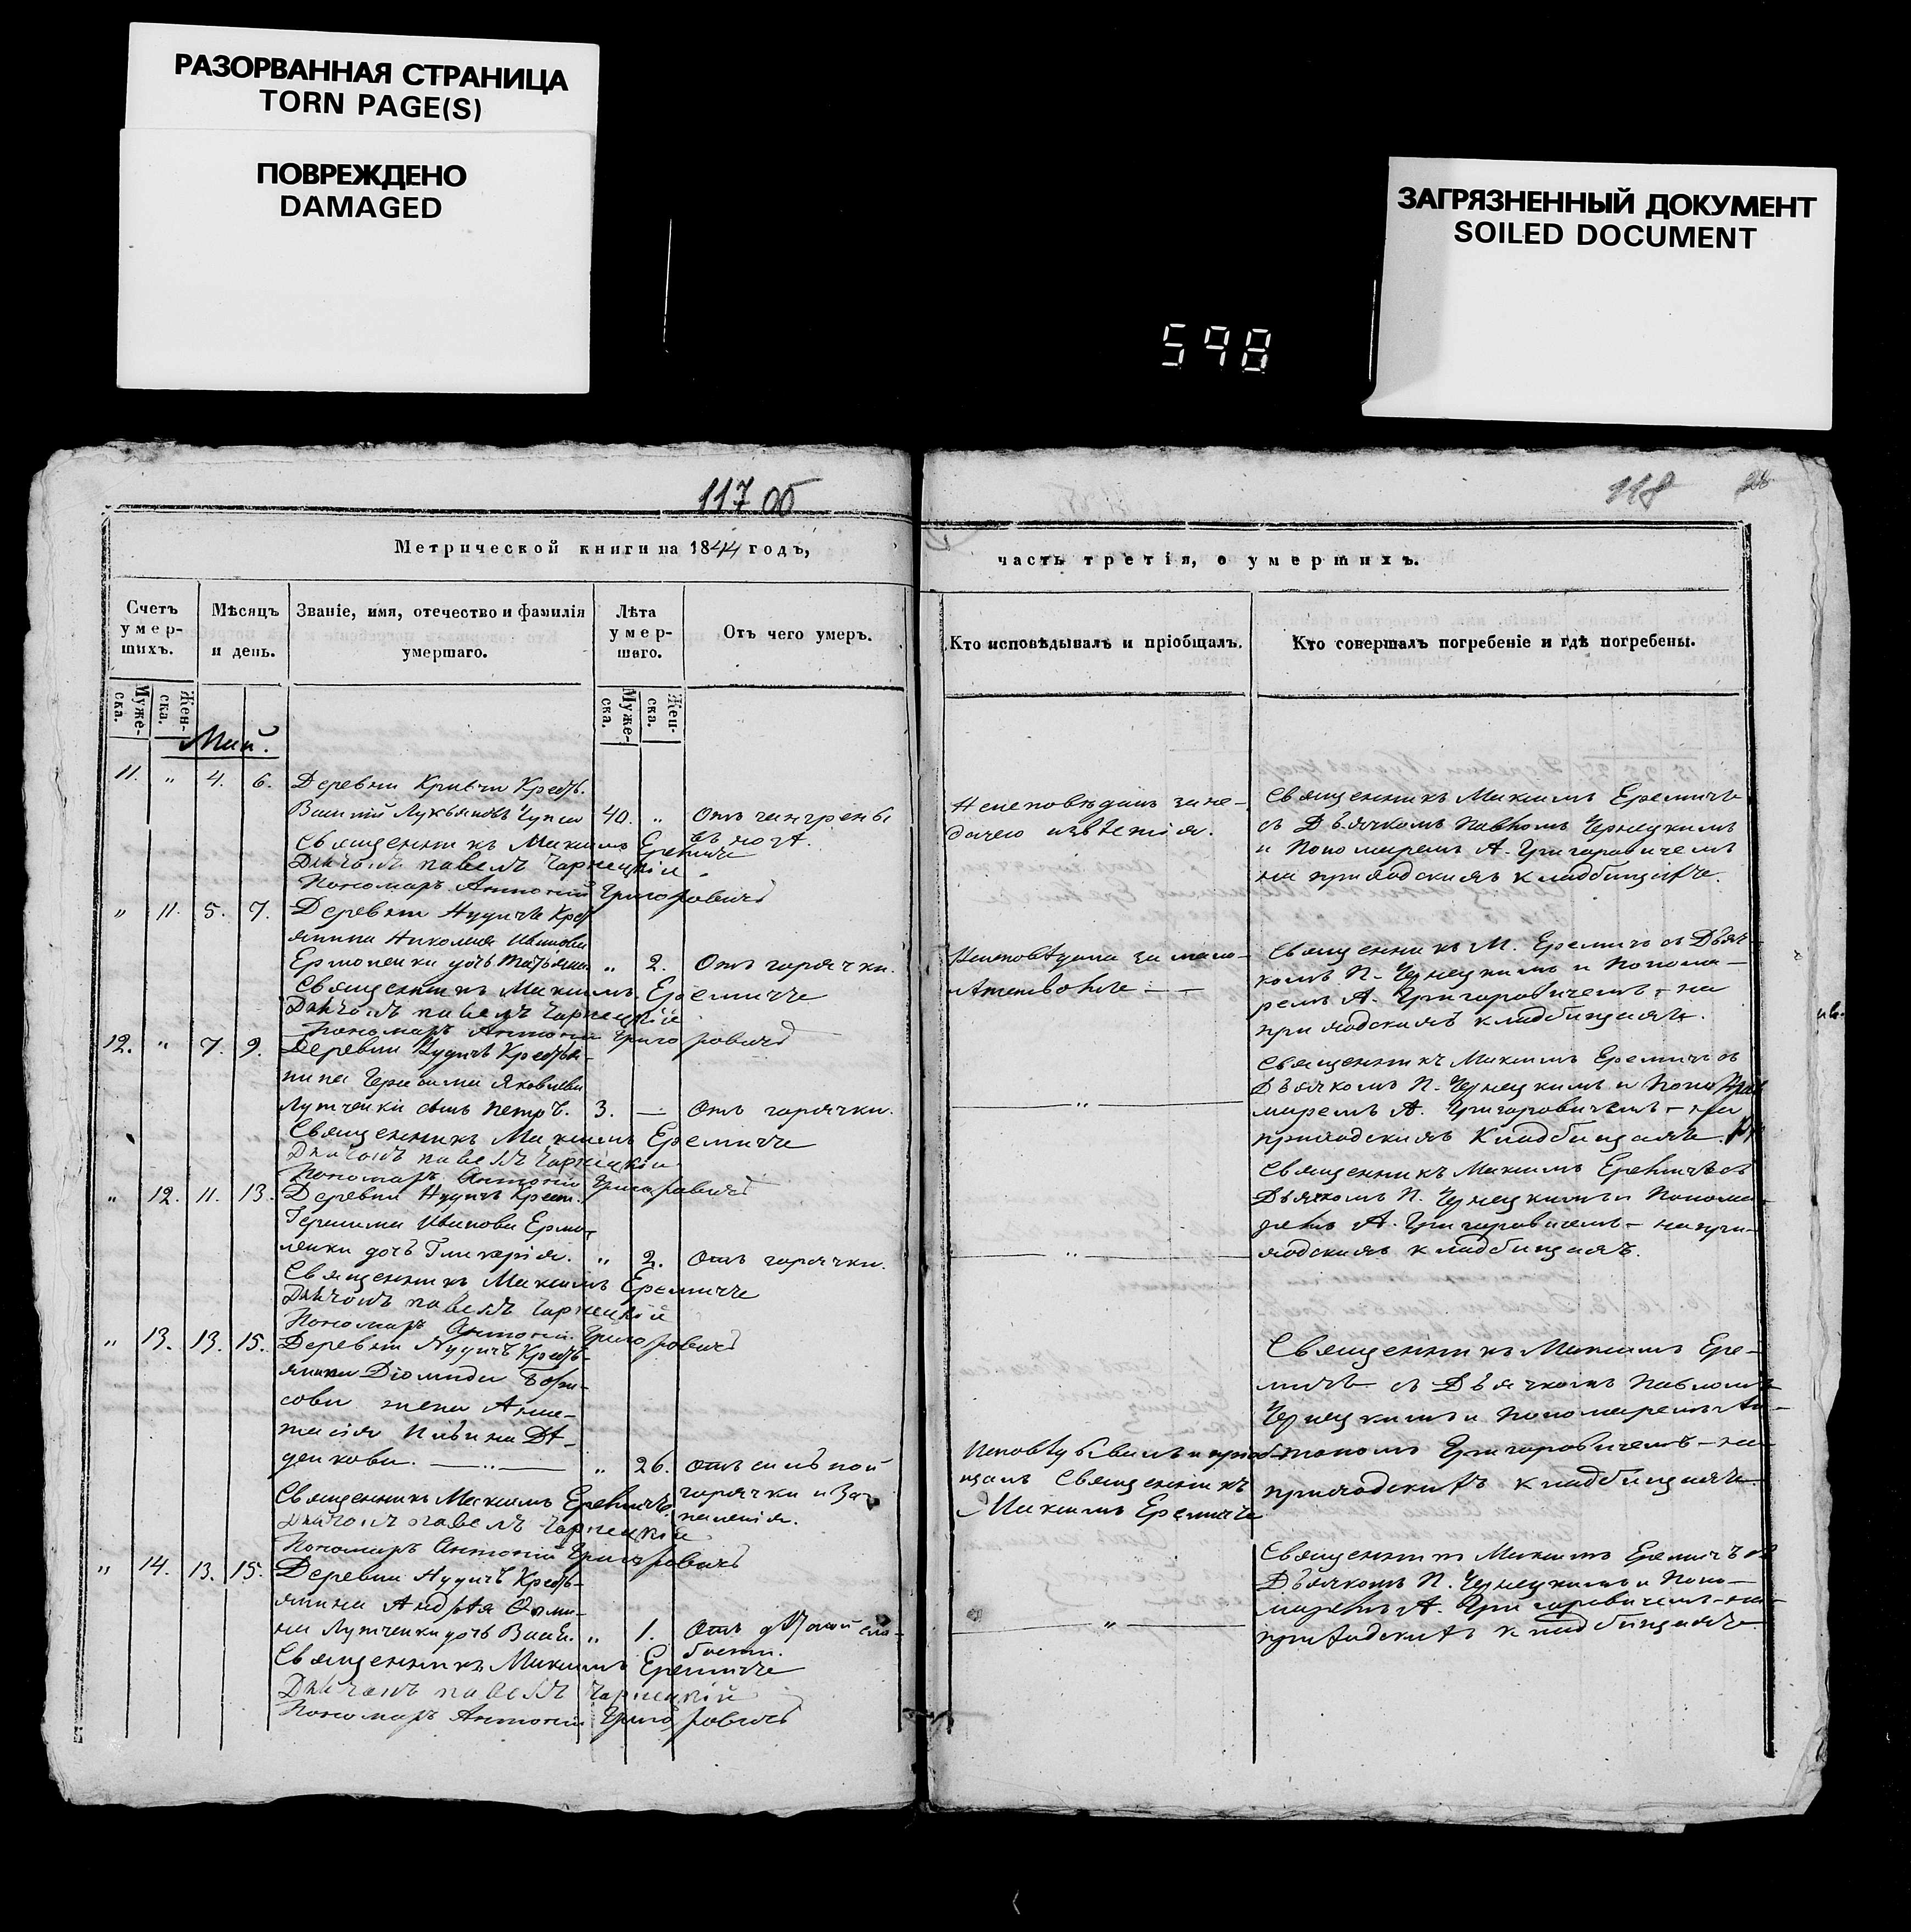 РАЗОРВАННАЯ СТРАНИЦА
TORN PAGE(S)
ПОВРЕЖДЕНО
DAMAGED
ЗАГРЯЗНЕННЫЙ ДОКУМЕНТ
SOILED DOCUMENT
598
117 об
118
Метрической книги на 1844 годъ,
часть третія, о умершихъ.
Счетъ умер-шихъ.
Мѣсяцъ и день.
Званіе, имя, отечество и фамилія умершаго.
Лѣта умер-шаго.
Отъ чего умеръ.
Кто исповѣдывалъ и пріобщалъ.
Кто совершалъ погребеніе и гдѣ погребены.
Муже-ска.
Жен-ска.
Муже-ска.
Жен-ска.
Май.
11. " 4. 6. Деревни Кривчи Крестъ.
Василій Лукьяновъ 40. " Отъ гангрены
въ ногѣ.
Священникъ Максимъ Еремичъ
Дьячокъ павелъ Чарнецкій
Пономарь Антоній Григоровичъ
Священникъ Максимъ Еремичъ
съ Дьячкомъ Павломъ Чернецкимъ
и Пономаремъ А. Григоровичемъ
на приходскихъ кладбищахъ.
" 11. 5. 7. Деревни Нудичъ Крест
янина Николая Иванова
Ермоленки дочь Татьяна " 2. Отъ горячки.
Священникъ Максимъ Еремичъ
Дьячокъ павелъ Чарнецкій
Пономарь Антоній Григоровичъ
Неисповѣдана за мало-
Священникъ М. Еремичъ съ Дьяч-
комъ П. Чернецкимъ и Понома-
ремъ А. Григоровичемъ - на
приходскихъ кладбищахъ.
12. " 7. 9. Деревни Нудичъ Крестья-
нина Герасима Яковлева
Лутченки сынъ Петръ. 3. — Отъ горячки.
Священникъ Максимъ Еремичъ
Дьячокъ павелъ Чарнецкій
Пономарь Антоній Григоровичъ
"
Священникъ Максимъ Еремичъ съ
Дьячкомъ П. Чернецкимъ и Поно
маремъ А. Григоровичемъ - на
приходскихъ кладбищахъ.
" 12. 11. 13. Деревни Нудичъ Крест.
Герасима Иванова Ермо-
ленки дочь Гликерія. " 2. Отъ горячки.
Священникъ Максимъ Еремичъ
Дьячокъ павелъ Чарнецкій
Пономарь Антоній Григоровичъ
"
Священникъ Максимъ Еремичъ съ
Дьячкомъ П. Чернецкимъ и Понома-
ремъ А. Григоровичемъ - на при-
ходскихъ кладбищахъ.
" 13. 13. 15. Деревни Нудичъ Крестъ-
янина Діомида Бори-
сова жена Анас-
тасія
" 26. отъ сильной
горячки
Священникъ Максимъ Еремичъ
Дьячокъ павелъ Чарнецкій
Пономарь Антоній Григоровичъ
Исповѣдывалъ и пріоб-
щалъ Священникъ
Максимъ Еремичъ
Священникъ Максимъ Ере-
мичъ съ Дьячкомъ Павломъ
Чернецкимъ и Пономаремъ Ан-
тономъ Григоровичемъ - на
приходскихъ кладбищахъ
" 14. 13. 15. Деревни Нудичъ Крестъ-
янина Андрѣя Ѳоми-
на Лутченки дочь " 1. Отъ слабости.
Священникъ Максимъ Еремичъ
Дьячокъ павелъ Чарнецкій
Пономарь Антоній Григоровичъ
"
Священникъ Максимъ Еремичъ съ
Дьячкомъ П. Чернецкимъ и Поно-
маремъ А. Григоровичемъ - на
приходскихъ кладбищахъ